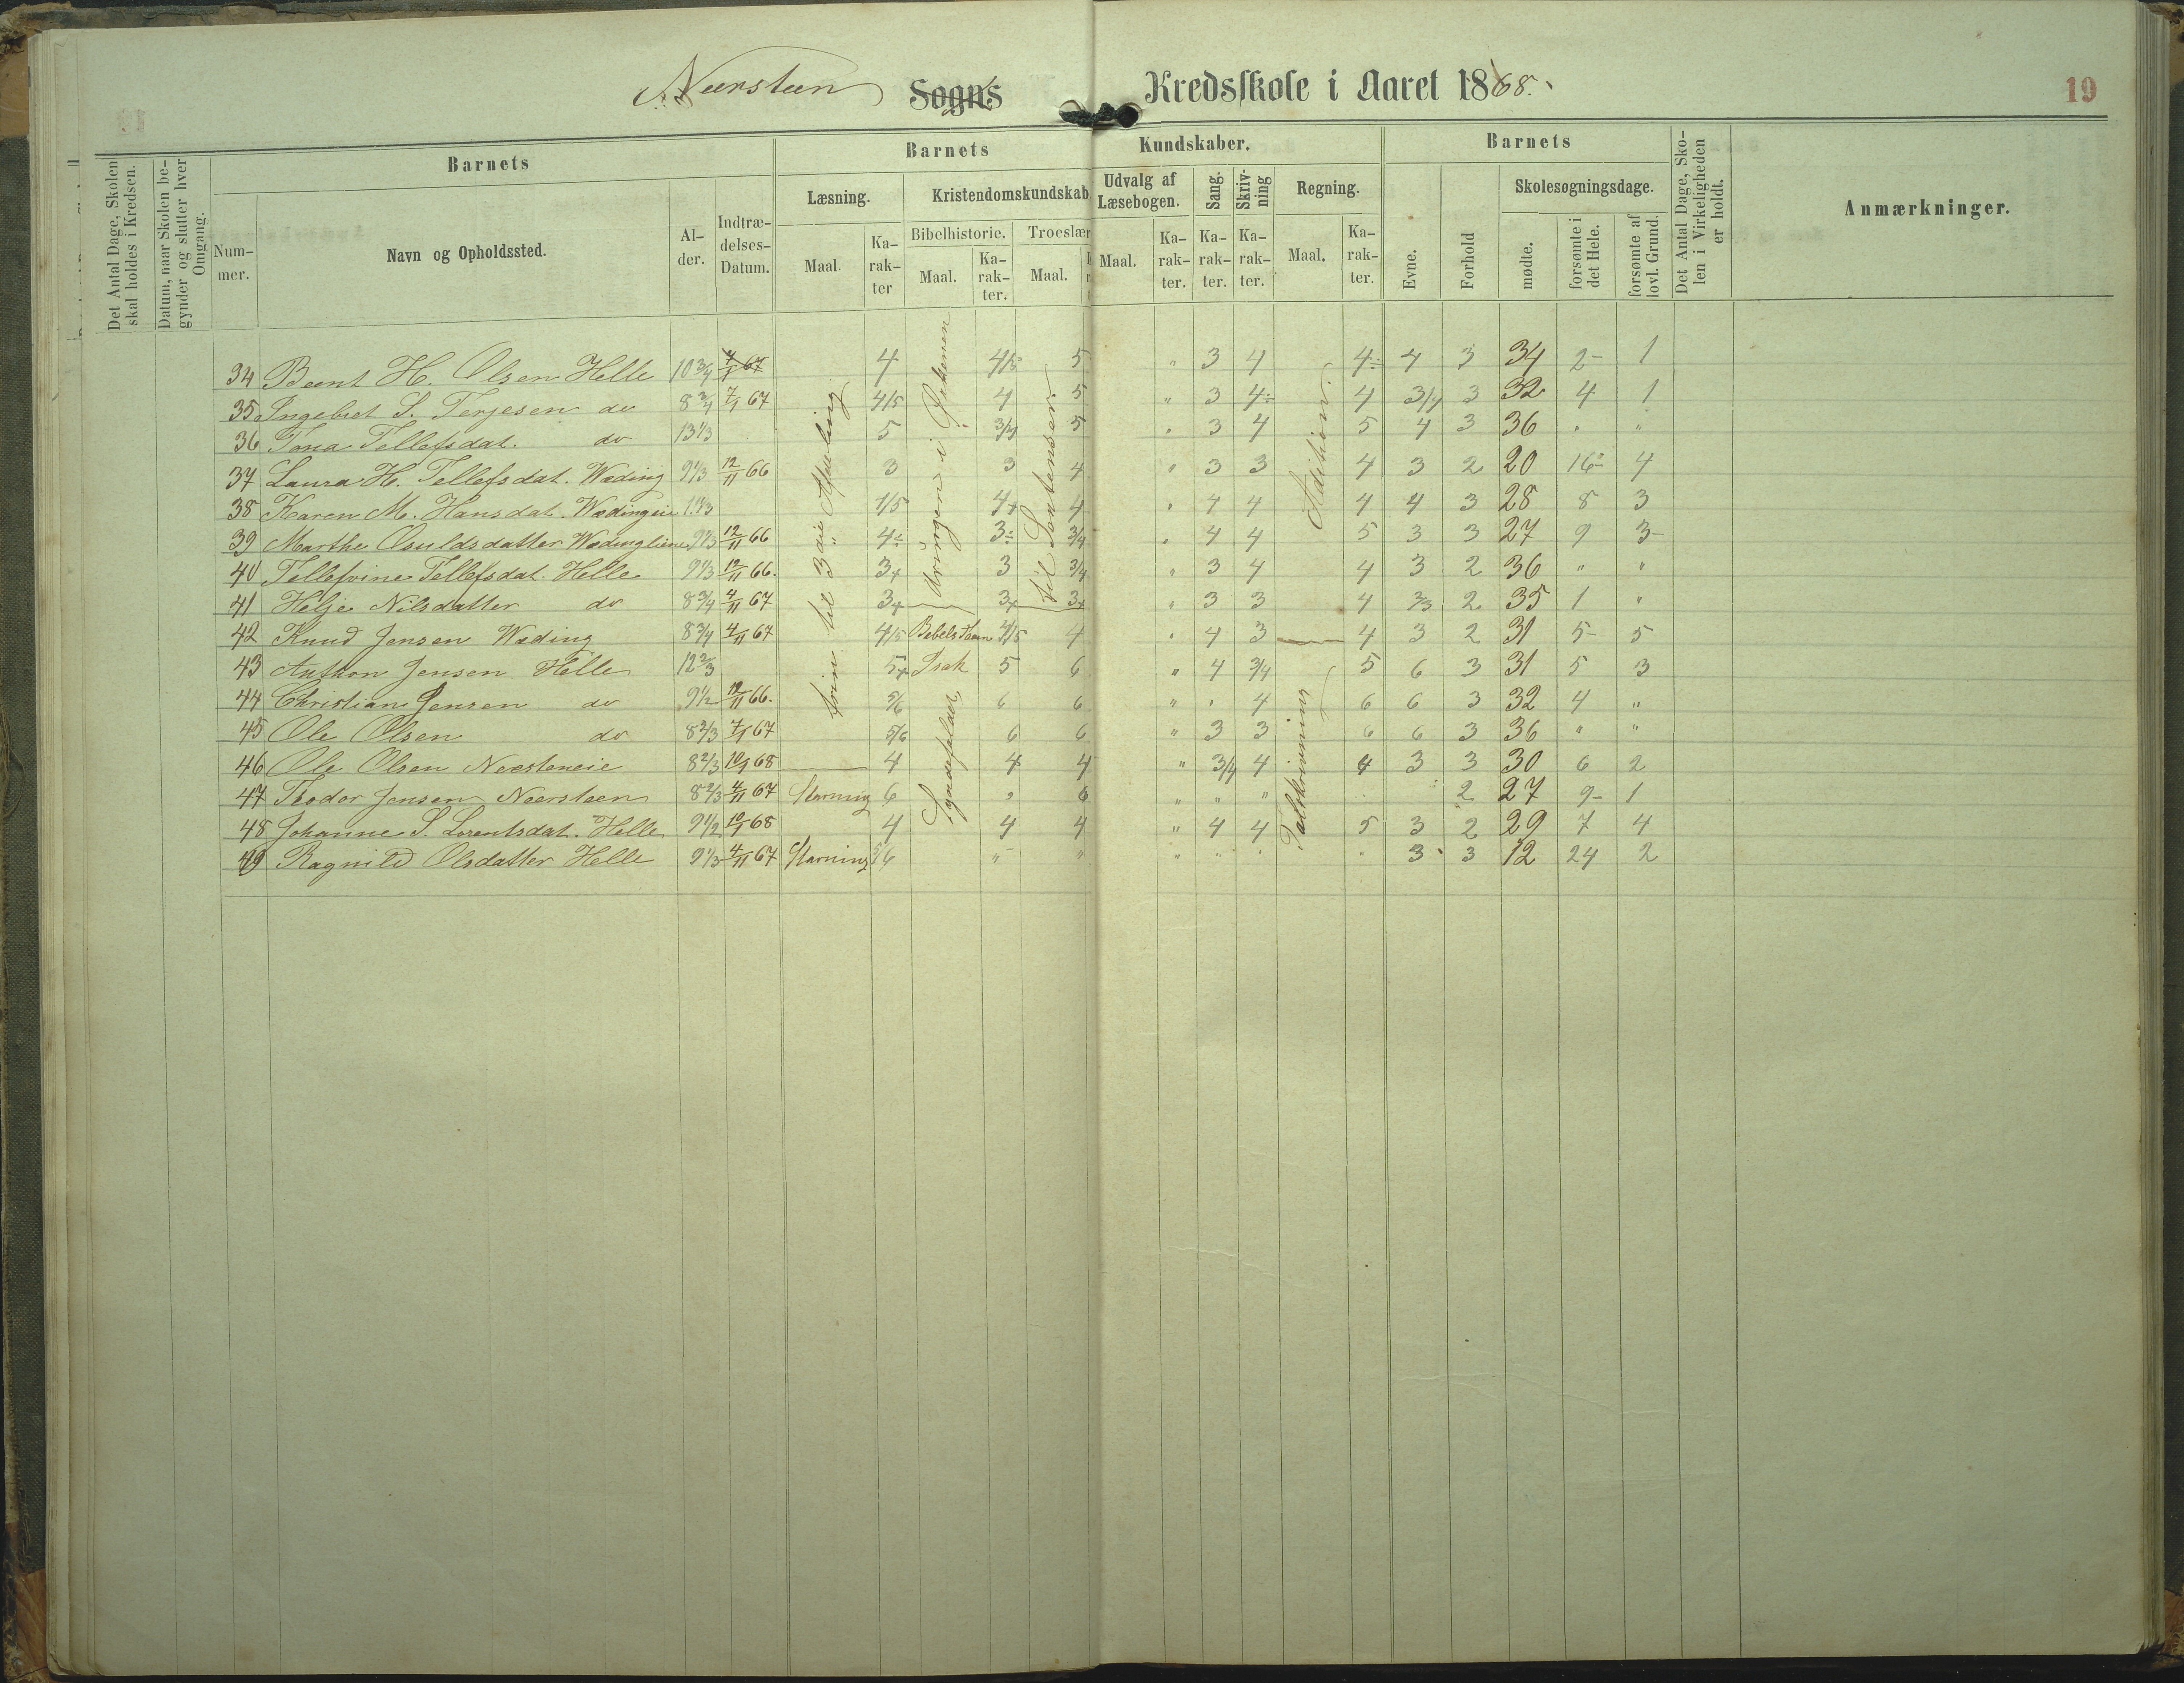 Neersteen Sogns Kredsskole i Aaret 1868.
19
Det Antal Dage, Skolen skal holdes i Kredsen.
Datum, naar Skolen begynder og slutter hver Omgang.
Barnets
Nummer.
Navn og Opholdssted.
Alder.
Indtrædelses-Datum.
Barnets Kundskaber.
Læsning.
Maal.
Karakter
Kristendomskundskab
Bibelhistorie.
Maal.
Karakter.
Troeslær
Maal.
Udvalg af Læsebogen.
Maal.
Karakter.
Sang.
Karakter.
Skrivning
Karakter.
Regning.
Maal.
Karakter.
Barnets
Evne.
Forhold
Skolesøgningsdage.
mødte.
forsømte i det Hele.
forsømte af lovl. Grund.
Det Antal Dage, Skolen i Virkeligheden er holdt.
Anmærkninger.
trin til 3die Afdeling.
til Sentenser
Addition.
Syndefaldet
Talskrivning
34 Bernt H. Olsen Helle 10 3/4 7/1 67 4 4/5 5 " 3 4 4÷ 4 3 34 2- 1
35 Ingebret S. Terjesen do 8 3/4 7/1 67 4/5 4 5 " 3 4÷ 4 3/4 3 32 4 1
36 Tona Tellefsdat. do 13 1/3 5 3/4 5 " 3 4 5 4 3 36 " "
37 Laura H. Tellefsdat. Wæding 9 1/3 12/11 66 3 3 4 " 3 3 4 3 2 20 16- 4
38 Karen M. Hansdat. Wædingeie 11 1/3 4/5 4+ 4 " 4 4 4 4 3 28 8 3
39 Marthe Osuldsdatter Wædingliene 9 1/3 12/11 66 4÷ 3÷ 3/4 " 4 4 5 3 3 27 9 3-
40 Tellefine Tellefsdat. Helle 9 1/3 12/11 66. 3+ 3 3/4 " 3 4 4 3 2 36 " "
41 Helje Nilsdatter do 8 3/4 4/11 67 3+ 3+ 3+ " 3 3 4 2/3 2 35 1 "
42 Knud Jensen Wæding 8 3/4 4/11 67 4/5 4/5 4 " 4 3 4 3 2 31 5- 5
43 Anthon Jensen Helle 12 2/3 5+ Isak 5 6 " 4 3/4 5 6 3 31 5 3
44 Christian Jensen do 9 1/2 12/11 66. 5/6 6 6 " " 4 6 6 3 32 4 "
45 Ole Olsen do 8 2/3 7/1 67 5/6 6 6 " 3 3 6 6 3 36 " "
46 Ole Olsen Neersteneie 8 2/3 10/1 68 4 4 4 " 3/4 4 4 3 3 30 6 2
47 Teodor Jensen Neersteen 8 2/3 4/11 67 Stavning 6 " 6 " " " 2 27 9- 1
48 Johanne S. Lorentsdat. Helle 9 1/2 10/1 68 4 4 4 " 4 4 5 3 2 29 7 4
49 Ragnild Olsdatter Helle 9 1/3 4/11 67 Stavning 5/6 " " " " " " 3 3 12 24 2